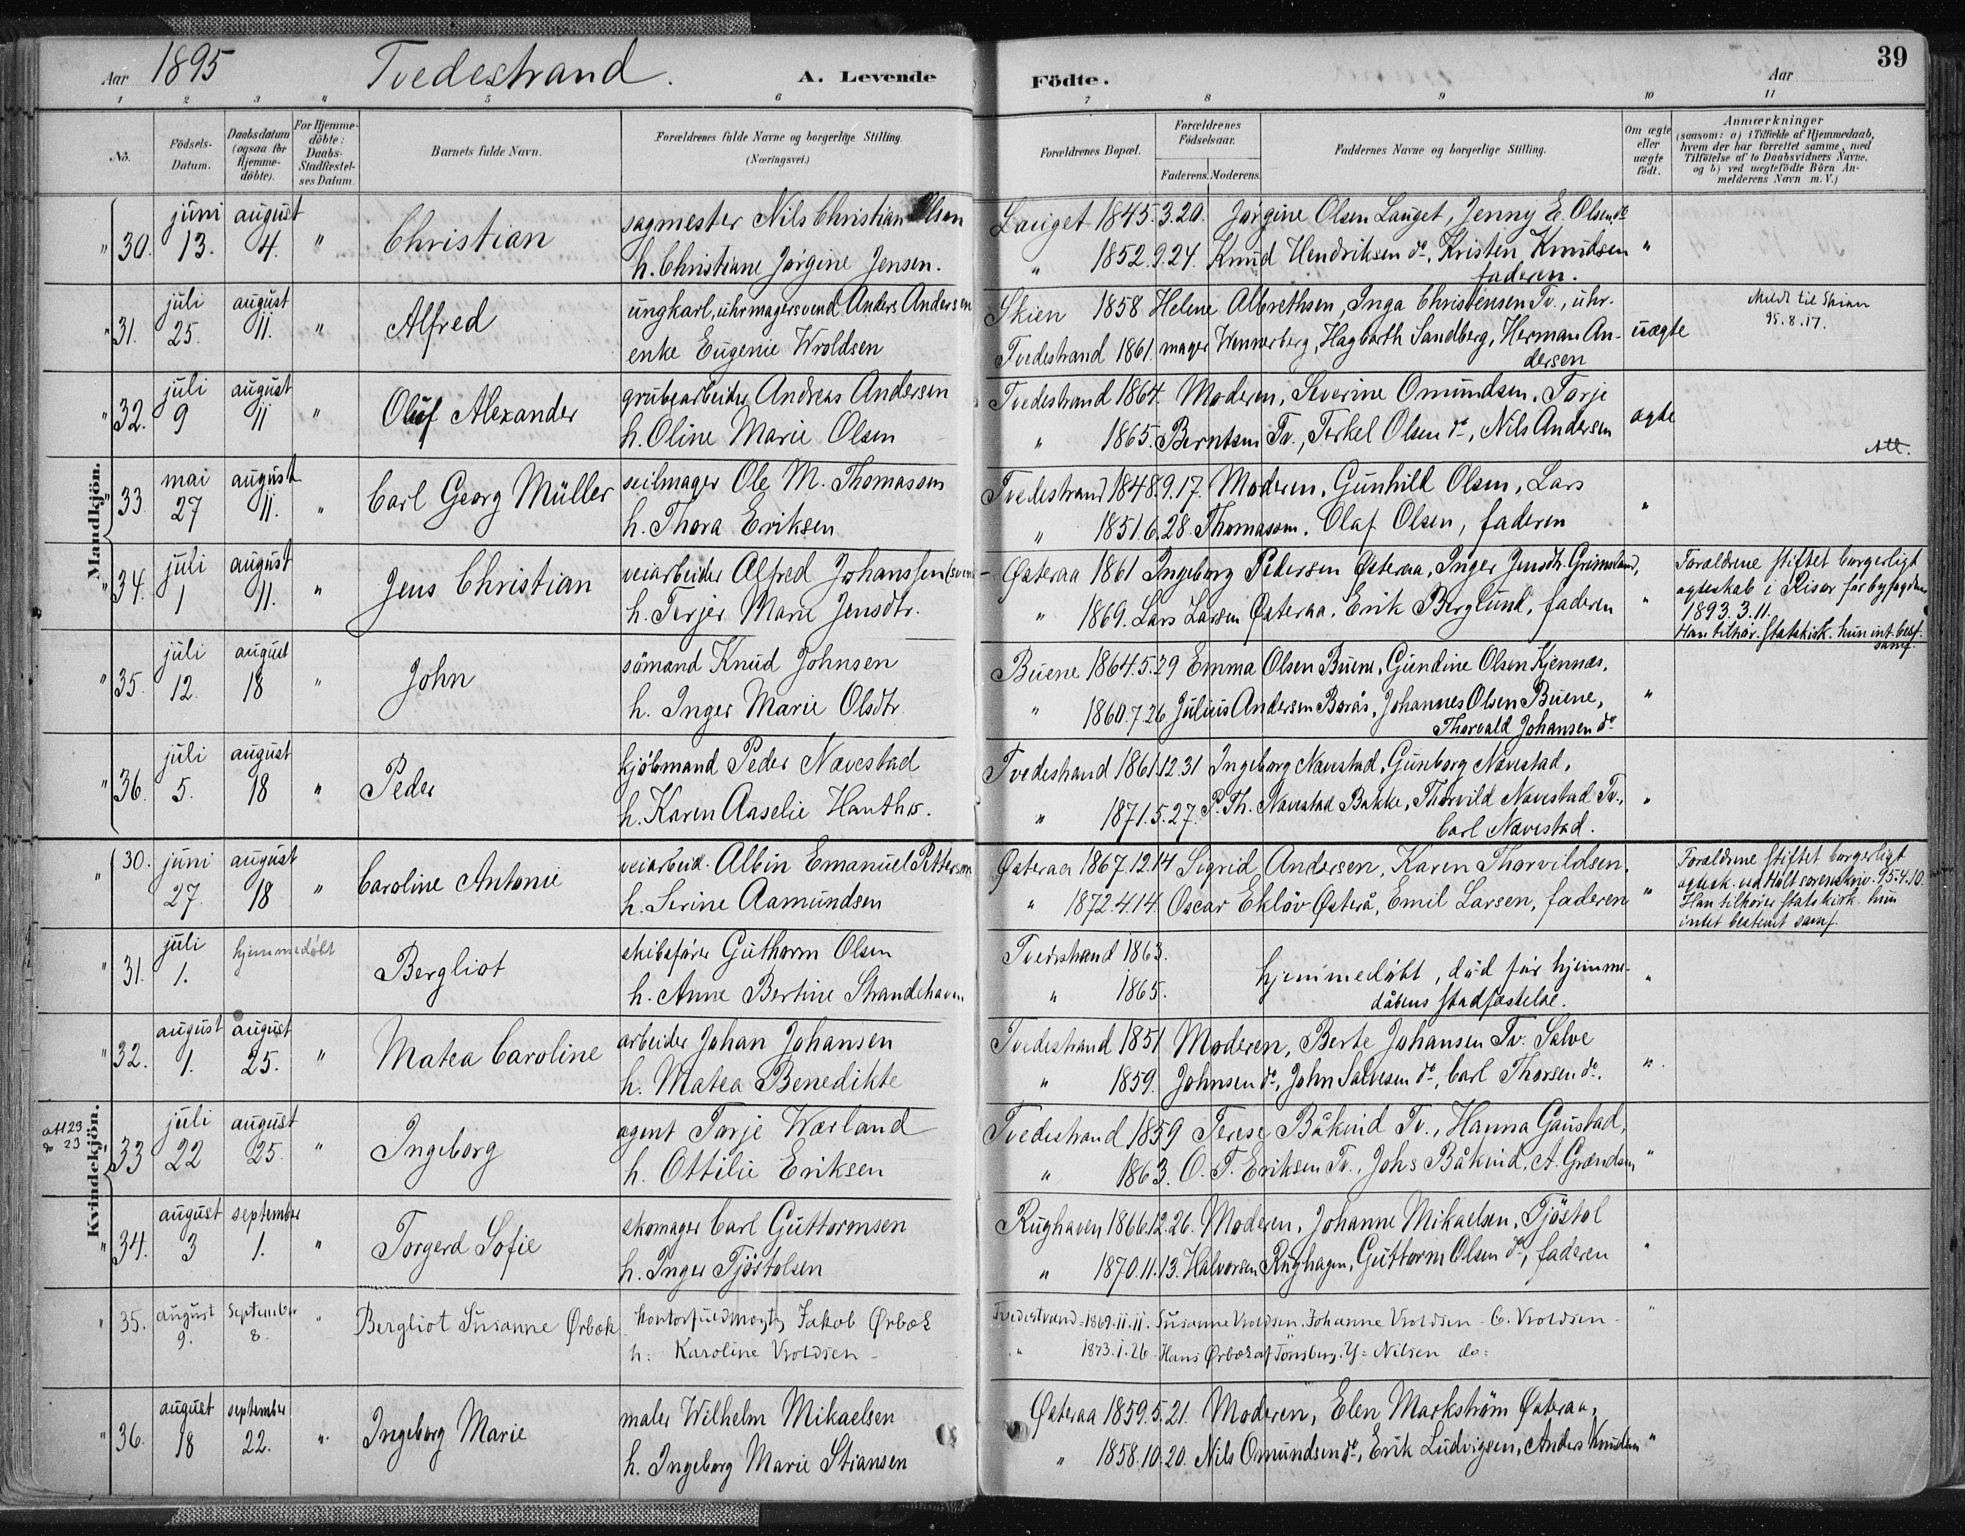 Aar 1895 Tvedestrand. A. Levende
1 2 3 4 5 6
No.
Födsels-
Datum.
Daabsdatum
(ogsaa for
Hjemme-
döbte).
For Hjemme-
döbte:
Daabs-
Stadfæstel-
ses Datum
Barnets fulde Navn.
Forældrenes fulde Navne og borgerlige Stilling.
(Næringsvei.)
Mandkjön.
juni august sagmester Nils Christian Olsen
" 30. 13. 4. " Christian
h. Christiane Jørgine Jensen.
juli august ungkarl, uhrmagersvend Anders Andersen
" 31. 25. 11. " Alfred
enke Eugenie Wroldsen
juli august grubearbeider Andreas Andersen
" 32. 9 11 " Oluf Alexander
h. Oline Marie Olsen
mai august seilmager Ole M. Thomassen
" 33 27 11. " Carl Georg Müller
h. Thora Eriksen
juli august veiarbeider Alfred Johanssen
" 34. 1 11. " Jens Christian
h. Terjer Marie Jensdtr.
juli august sömand Knud Johnsen
" 35. 12. 18 " John
h. Inger Marie Olsdtr
juli august kjöbmand Peder Nævestad
" 36. 5. 18 " Peder
h. Karen Aaselie
Kvindekjön.
30. juni august veiarbeid. Albin Emanuel Petterson
" 27. 18 " Caroline Antonie
h. Serine Aamundsen
juli hjemmedøbt skibsfører Guthorm Olsen
" 31. 1. Bergliot
h. Anne Bertine Strandehaven
august august arbeider Johan Johansen
" 32. 1. 25. " Matea Caroline
h. Matea Benedikte
juli august agent Tarje Værland
33 22 25. " Ingeborg
h. Ottilie Eriksen
august september skomager Carl Guttormsen
" 34. 3 1. " Torgerd Sofie
h. Inger Tjöstolsen
" 35. august september " Bergliot Susanne Ørbæk kontorfuldmægtig Jakob Ørbæk
9. 8. h: Karoline Vroldsen -
august september maler Wilhelm Mikaelsen
" 36. 18 22. " Ingeborg Marie
h. Ingeborg Marie Stiansen
39
Födte. Aar
7 8 9 10 11
Forældrenes Bopæl.
Forældrenes
Födselsaar.
Faderens. Moderens.
Faddernes Navne og borgerlige Stilling.
Om ægte
eller
uægte
födt.
Anmærkninger
(saasom: a) i Tilfælde af Hjemmedaab,
hvem der har forrettet samme, med
Tilföielse af to Daabsvidners Navne.
og b) ved uægtefödte Börn An-
melderens Navn m. V.)
Lauget 1845.3.20. Jørgine Olsen Lauget, Jenny E. Olsen do
" 1852.9.24. Knud Hendriksen do, Kristen Knudsen "
faderen.
Skien 1858 Helene Albrethsen, Inga Christensen Tv., uhr-
Tvedestrand 1861. mager Wennerberg, Hagbarth Sandberg, Herman An- uægte
dersen
Meldt til Skien
95.8.17.
Tvedestrand 1864. Moderen, Severine Omundsen, Tarje
" 1865. Berntsen Tv., Terkel Olsen do, Nils Andersen ægte
Att.
Tvedestrand 1848.9.17. Moderen, Gunhild Olsen, Lars
" 1851.6.28 Thomassen. Olaf Olsen, faderen "
Østeraa 1861 Ingeborg Pedersen Østeraa, Inger Jensdtr. Grimsland,
" 1869. Lars Larsen Østeraa, Erik Berglund, faderen "
Forældrene stiftet borgerligt
ægteskab i Risør før byfogden
1893.3.11.
Han tilhør. statskirk. hun int. best.
samf.
Buene 1864.5.29 Emma Olsen Buene, Gundine Olsen Kjennæs,
" 1860.7.26. Julius Andersen Borås, Johannes Olsen Buene, "
Thorvald Johansen do
Tvedestrand 1861.12.31 Ingeborg Nævestad, Gunborg Nævestad,
" 1871.5.27. P. Th. Nævestad Bakke, Thorvild Nævestad Tv., "
Carl Nævestad.
Østeraa 1867.12.14 Sigrid Andersen, Karen Thorvildsen,
" 1872.4.14. Oscar Ekløv Østerå, Emil Larsen, faderen "
Forældrene stiftet borgerligt
ægtesk. ved Holt sorenskriv. 95.4.10.
Han tilhører statskirk. hun
intet bestemt samf.
Tvedestrand 1863.
" 1865. hjemmedøbt, død før hjemme- "
dåbens stadfæstelse.
Tvedestrand 1851 Moderen, Berte Johansen Tv. Salve
" 1859. Johnsen do, John Salvesen do, Carl Thorsen do. "
Tvedestrand 1859 Terese Båkind Tv., Hanna Gaustad,
" 1863. O. T. Eriksen Tv., Johs Båkind, A. Grændsen "
Rughaven 1866.12.26. Moderen, Johanne Mikaelsen, Tjöstol
" 1870.11.13. Halvorsen Rughagen, Guttorm Olsen do, faderen "
Tvedestrand - 1869.11.11. Susanne Vroldsen. Johanne Vroldsen - C. Vroldsen - "
" 1873.1.26 Hans Ørbæk af Tönsberg. Y= Nilsen do:
Østeraa 1859.5.21. Moderen, Elen Markstrøm Østeraa,
" 1858.10.20. Nils Omundsen do, Erik Ludvigsen, Anders Knudsen "